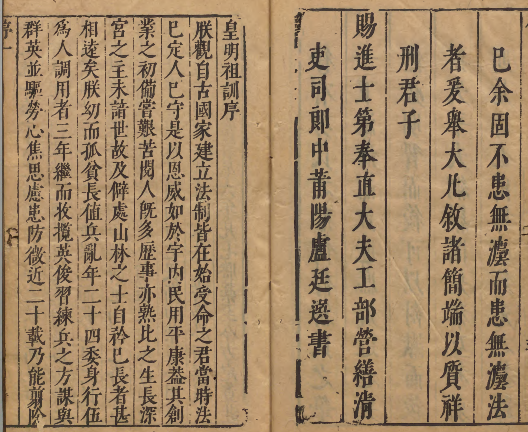 已余固不患無灋而患無灋法
者爰舉大凡敘諸簡端以質祥
刑君子
賜進士第奉直大夫工部營繕清
吏司郎中莆陽盧廷選書
皇明祖訓序
朕觀自古國家建立法制皆在始受命之君當時法
已定人已守是以恩威加於宇內民用平康葢其創
業之初備嘗艱苦閱人既多歷事亦熟比之生長深
宮之主未諳世故及僻處山林之士自矜已長者甚
相遠矣朕幼而孤貧長值兵亂年二十四委身行伍
為人調用者三年繼而收攬英俊習練兵之方謀與
群英並驅勞心焦思慮患防微近二十載乃能剪除
序一